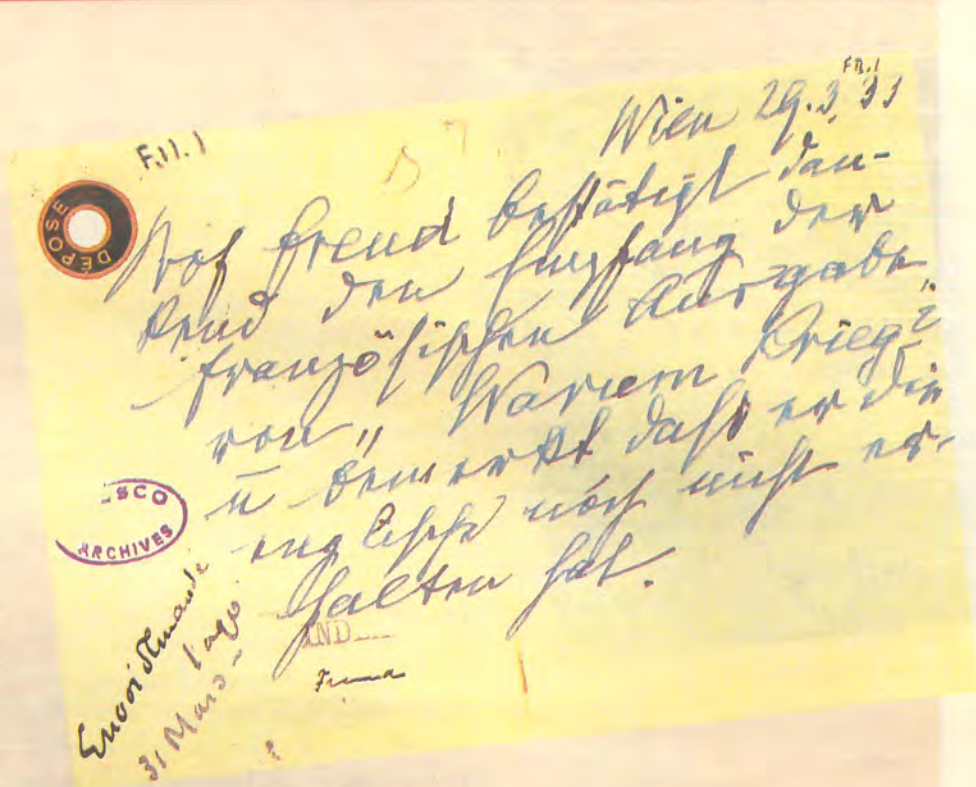 FR.1
F.11.1
Wien 29.3.33
Prof Freud bestätigt dan-
kend den Empfang der
französischen Ausgabe
von „Warum Krieg?"
u bemerkt daß er die
englische noch nicht er-
halten hat.
DEPOSE
SCO
ARCHIVES
Envoi
31 Mars
IND